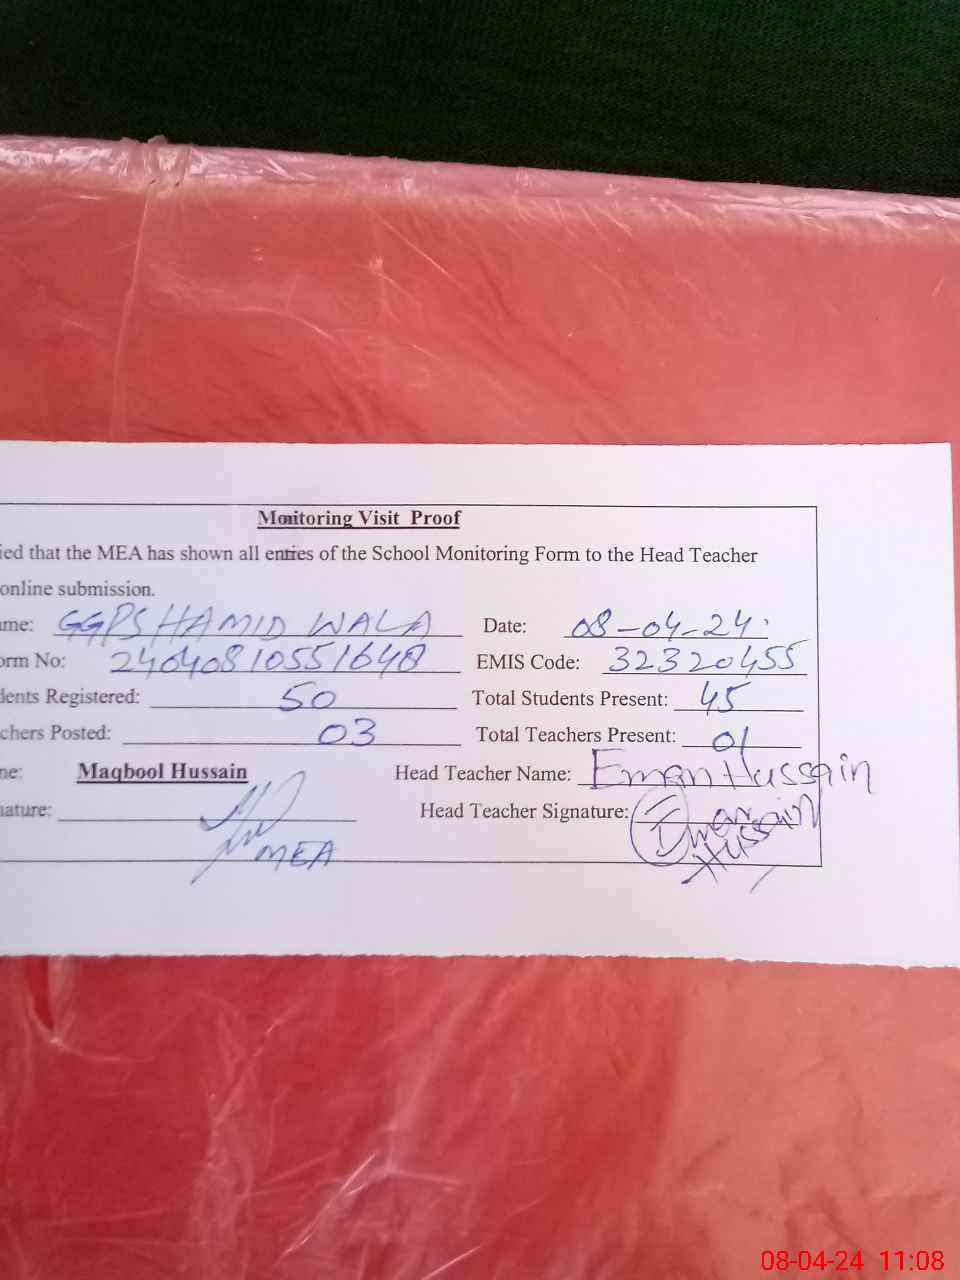 Monitoring Visit Proof
ied that the MEA has shown all entries of the School Monitoring Form to the Head Teacher
online submission.
ame: GGPS HAMID WALA Date: 08-04-24
orm No: 24040810551648 EMIS Code: 32320455
dents Registered: 50 Total Students Present: 45
chers Posted: 03 Total Teachers Present: 01
ne: Maqbool Hussain Head Teacher Name: Eman Hussain
nature: MEA Head Teacher Signature: Eman Hussain
08-04-24 11:08